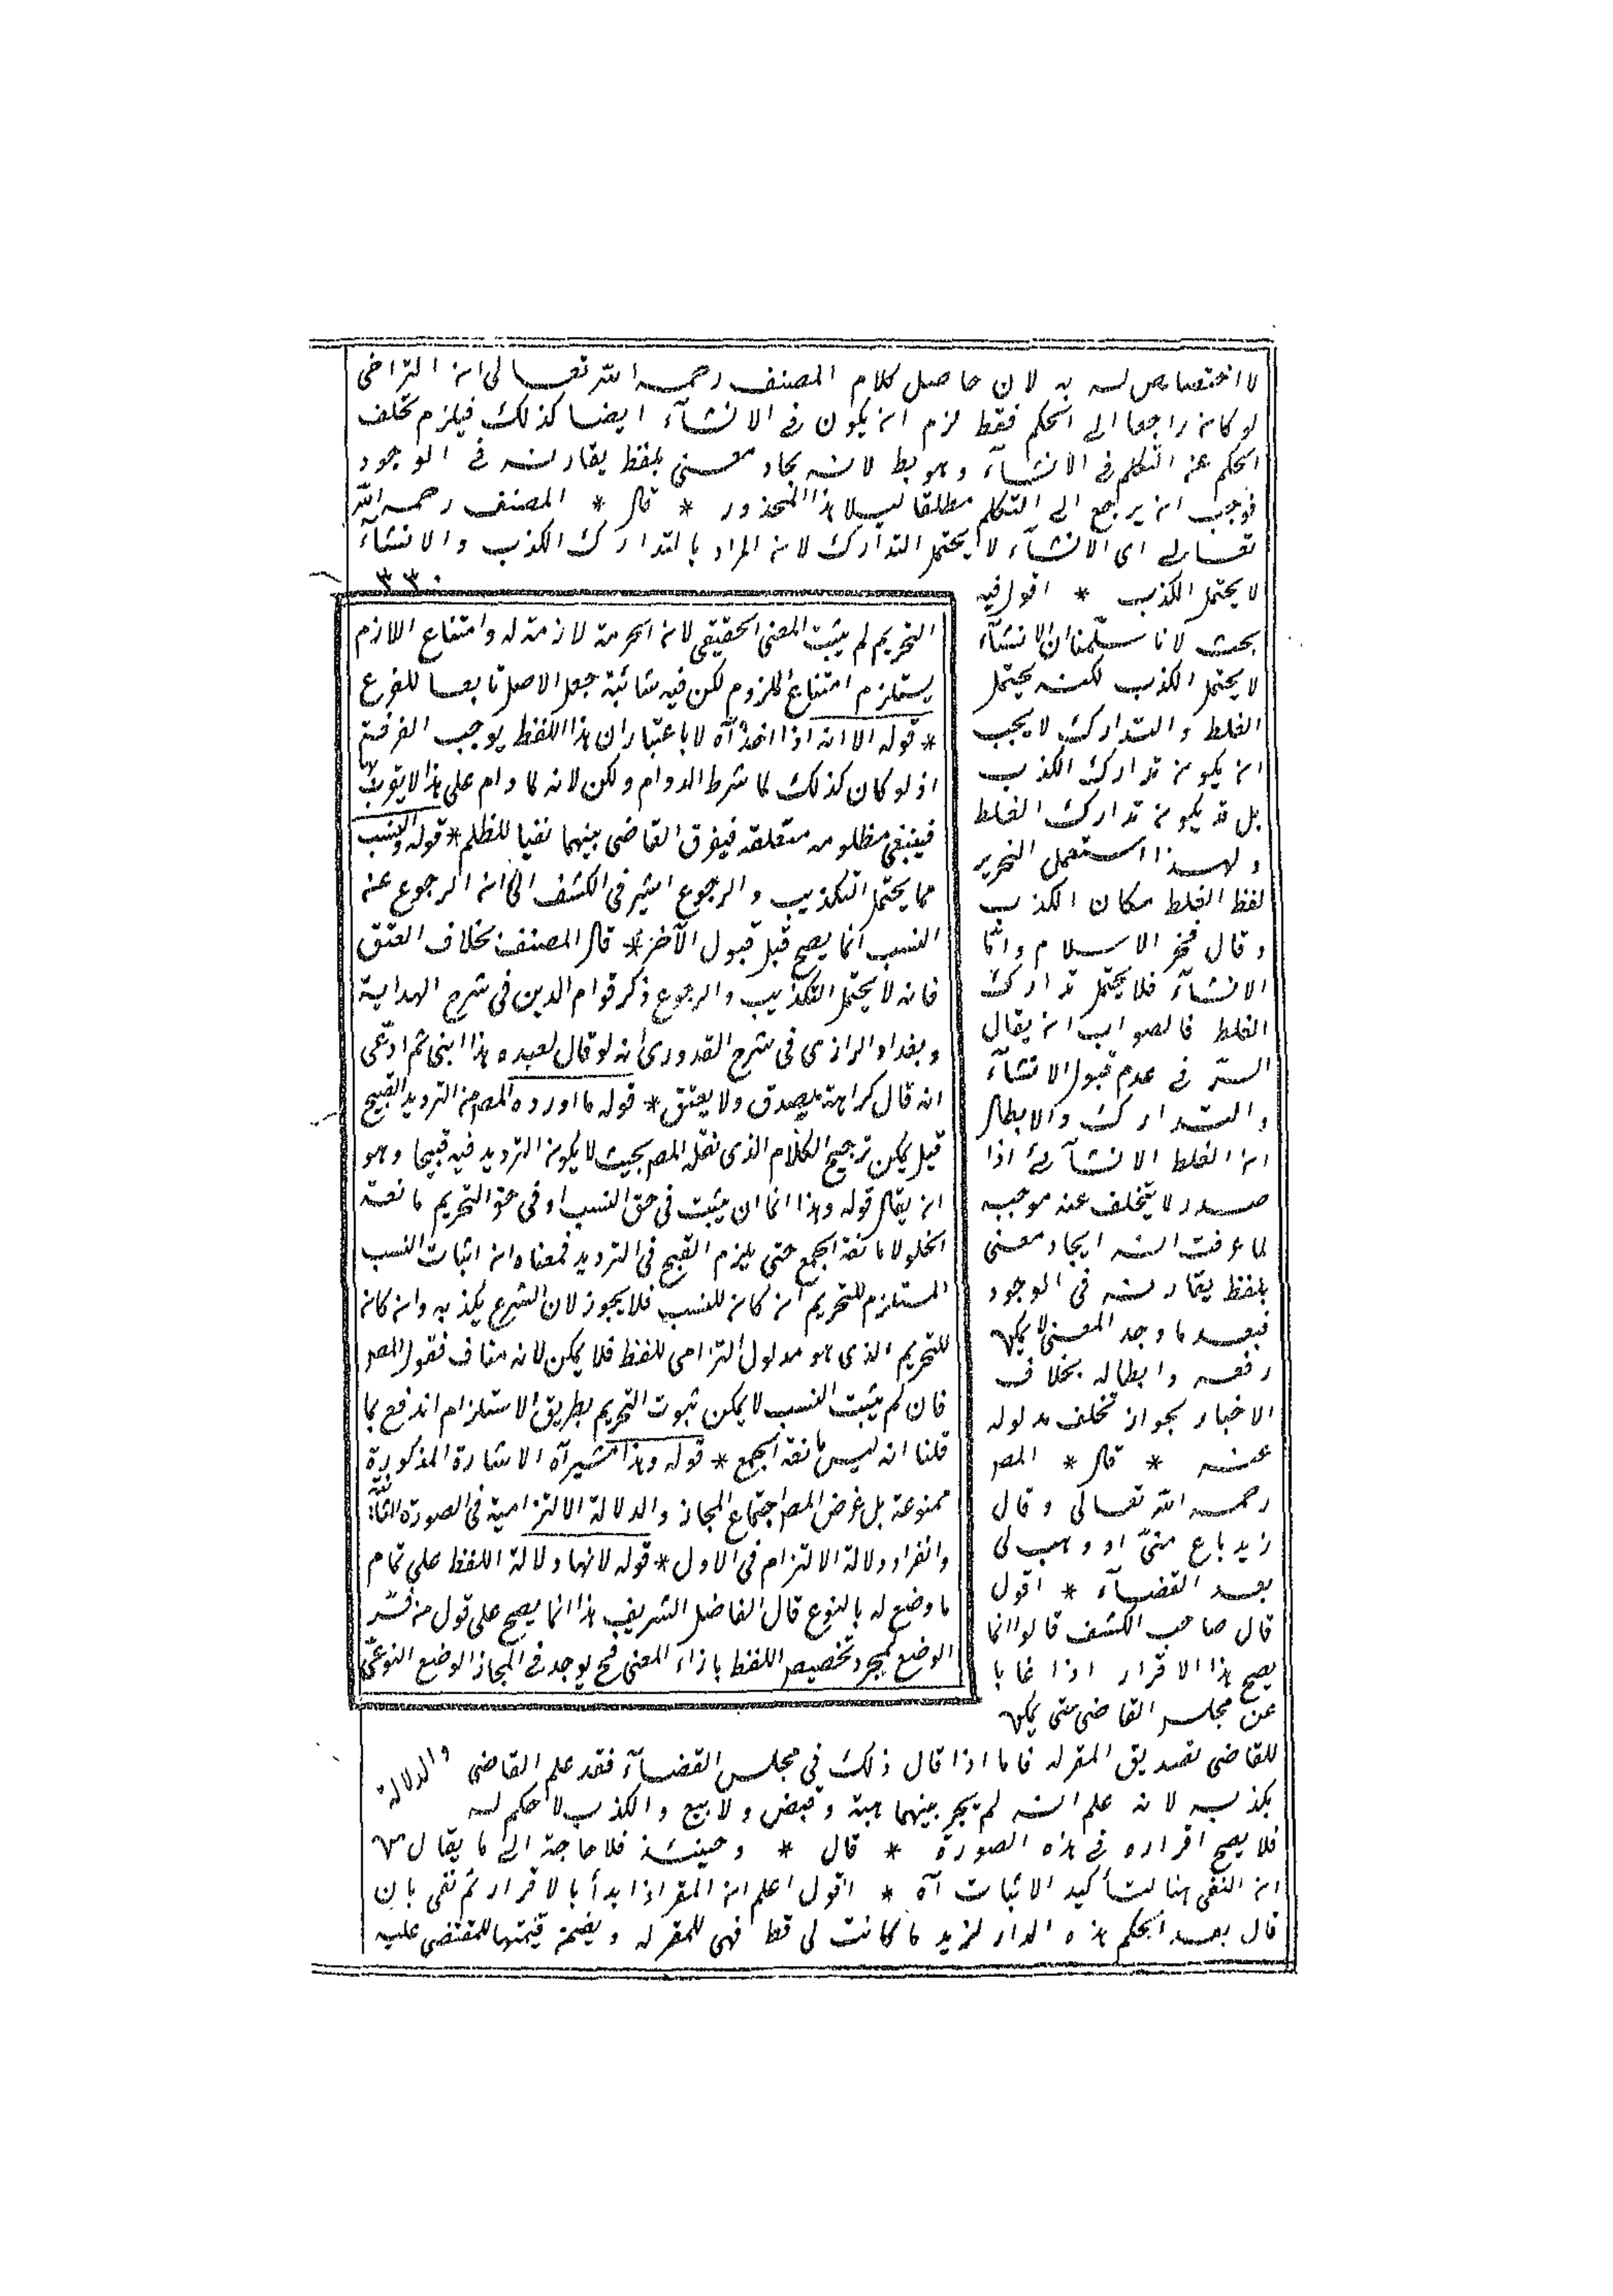 لا اختصاص له به لان حاصل كلام المصنف رحمه الله تعالى ان التراخى
لو كان راجعا الى الحكم فقط لزم ان يكون فى الانشآء ايضا كذلك فيلزم تخلف
الحكم عن التكلم فى الانشآء وهو بط لانه ايجاد معنى بلفظ يقارنه فى الوجود
فوجب ان يرجع الى التكلم مطلقا لهذا المحذور * قال * المصنف رحمه الله
تعالى اى الانشآء لا يحتمل التدارك لان المراد بالتدارك الكذب والانشآء
لا يحتمل الكذب * اقول فيه
بحث لانا سلّمنا ان الانشآء
لا يحتمل الكذب لكنه يحتمل
الغلط والتدارك لا يجب
ان يكون تدارك الكذب
بل قد يكون تدارك الغلط
ولهذا استعمل النحرير
لفظ الغلط مكان الكذب
وقال فخر الاسلام وامّا
الانشآء فلا يحتمل تدارك
الغلط فالصواب ان يقال
السرّ فى عدم قبول الانشآء
والتدارك والابطال
ان الغلط الانشآئى اذا
صدر لا يتخلف عنه موجبه
لما عرفت انه ايجاد معنى
بلفظ يقارنه فى الوجود
فبعد ما وجد المعنى لا يمكن
رفعه وابطاله بخلاف
الاخبار بجواز تخلف مدلوله
عنه * قال * المص
رحمه الله تعالى وقال
زيد باع منّى او وهب لى
بعد القضآء * اقول
قال صاحب الكشف قالوا انما
يصح هذا الاقرار اذا غابا
عن مجلس القاضى حتى يمكن
للقاضى تصديق المقر له فاما اذا قال ذلك فى مجلس القضآء فقد علم القاضى
بكذبه لانه علم انه لم يجر بينهما هبة وقبض ولا بيع والكذب لا حكم له
فلا يصح اقراره فى هذه الصورة * قال * وحينئذ فلا حاجة الى ما يقال من
ان النفى هنا لتأكيد الاثبات آه * اقول اعلم ان المقر اذا بدأ بالاقرار ثم نفى بان
قال بعد الحكم هذه الدار لزيد ما كانت لى قط فهى للمقر له ويضمن قيمتها للمقضى عليه
٣٣٠
التحريم لم يثبت المعنى الحقيقى لان الحرمة لازمة له وامتناع اللازم
يستلزم امتناع الملزوم لكن فيه شائبة جعل الاصل تابعا للفرع
* قوله الا انه اذا اخذ آه لا باعتبار ان هذا اللفظ يوجب الفرقة
اذ لو كان كذلك لما شرط الدوام ولكن لانه لما دام على هذا لا يقربها
فيبقى مظلومه متعلقة فيفرق القاضى بينهما نفيا للظلم * قوله والنسب
مما يحتمل التكذيب والرجوع اشير فى الكشف الى ان الرجوع عنه
النسب انما يصح قبل قبول الآخر * قال المصنف بخلاف العتق
فانه لا يحتمل التكذيب والرجوع ذكر قوام الدين فى شرح الهداية
وبغداد الرازى فى شرح القدورى انه لو قال لعبده هذا ابنى ثم ادّعى
انه قال كرامة يصدق ولا يعتق * قوله ما اورده المص من الترديد القبيح
قيل يمكن ترجيح الكلام الذى نقله المص بحيث لا يكون الترديد فيه قبيحا وهو
ان يقال قوله وهذا اما ان يثبت فى حق النسب او فى حق التحريم مانعة
الخلو لا مانعة الجمع حتى يلزم القبح فى الترديد فمعناه ان اثبات النسب
المستلزم للتحريم ان كان للنسب فلا يجوز لان الشرع يكذبه وان كان
للتحريم الذى هو مدلول التزامى للفظ فلا يمكن لانه مناف فقول المص
فان لم يثبت النسب لا يمكن ثبوت التحريم بطريق الاستلزام اندفع بما
قلنا انه ليس مانعة الجمع * قوله وهذا تشير آه الاشارة المذكورة
ممنوعة بل غرض المص اجتماع المجاز والدلالة الالتزامية فى الصورة الثانية
وانفراد دلالة الالتزام فى الاول * قوله لانها دلالة اللفظ على تمام
ما وضع له بالنوع قال الفاضل الشريف هذا انما يصح على قول من فسّر
الوضع بمجرد تخصيص اللفظ بازاء المعنى فح يوجد فى المجاز الوضع النوعى
والدلالة